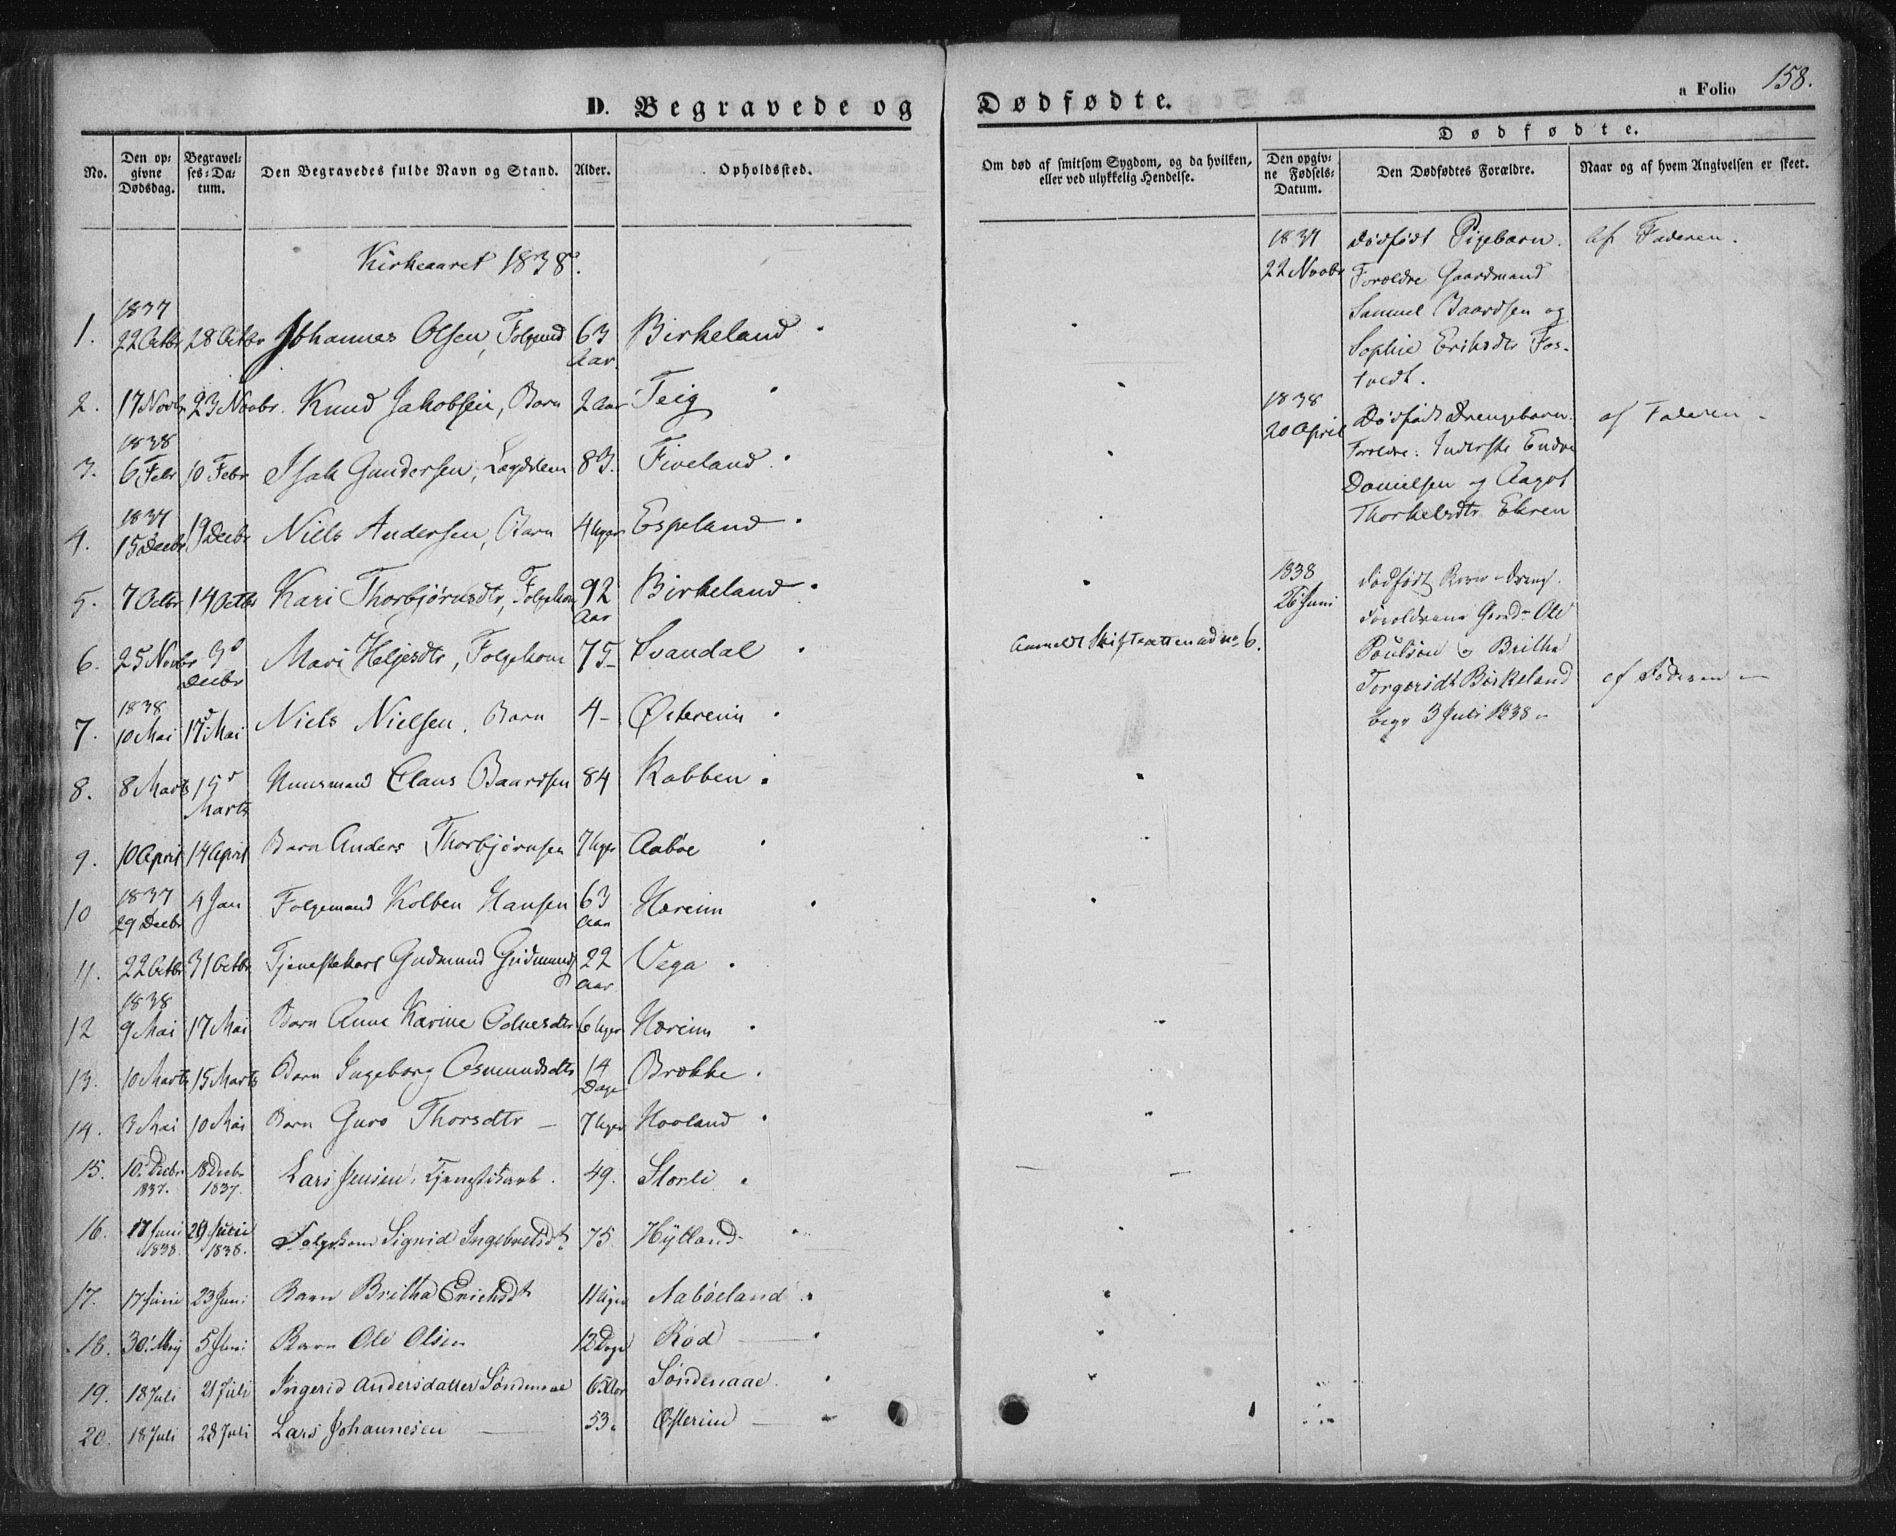 D. Begravede og Dødfødte.
a Folio 158.
No.
Den op-
givne
Dødsdag.
Begravel-
ses-Da-
tum.
Den Begravedes fulde Navn og Stand.
Alder.
Opholdssted.
Om død af smitsom Sygdom, og da hvilken,
eller ved ulykkelig Hendelse.
Dødfødte.
Den opgiv-
ne Fødsels-
Datum.
Den Dødfødtes Forældre.
Naar og af hvem Angivelsen er skeet.
Kirkeaaret 1838.
1837
1. 22 Octbr 28 Octbr Johannes Olsen, Folgemd 63 Birkeland
Aar
2. 17 Novbr 23 Novbr. Knud Jakobsen, Barn 2 Aar Teig
1838
3. 6 Febr 10 Febr Isak Gundersen, Lægdslem 83. Fiveland
1837
4. 15 Decbr 19 Decbr Niels Andersen, Barn 4 Uger Espeland
5. 7 Octbr 14 Octbr Kari Thorbjørnsdtr, Folgekone 92 Birkeland
Aar
6. 25 Novbr 3d Mari Helgesdtr, Folgekone 75 Svandal Anmeldt Skifteretten ad no 6.
Decbr
1838
7. 10 Mai 17 Mai Niels Nielsen, Barn 4 Østreim
8. 8 Marts 15 Huusmand Claus Baardsen 84 Rabben
Marts
9. 10 April 14 April Barn Anders Thorbjørnsen 7 Uger Aaboe
1837
10 29 Decbr 4 Jan Folgemand Kolben Hansen 63 Hereim
Aar
11. 22 Octbr 31 Octbr Tjenestekarl Gudmund Gudmunds 22 Vega
Aar
1838
12 9 Mai 17 Mai Barn Anne Karine Odnesdtr 6 Uger Hereim
13. 10 Marts 15 Marts Barn Ingeborg Osmundsdtr 14 Brække
Dage
14. 3 Mai 10 Mai Barn Guro Thorsdtr 7 Uger Hovland
15. 10 Decbr 18 Decbr Lars Jensen, Tjenestekarl. 49. Storli
1837. 1837.
16. 17 Juni 20 Juni Folgekone Sigrid Ingebretsdt 75 Hytland
1838. 1838.
17. 17 Juni 23 Juni Barn Britha Erichsdt 11 Uger Aabøeland
18. 30 Maj 5 Juni Barn Ole Olsen 12 Dage Rød
19. 18 Juli 21 Juli Ingerid Andersdatter Søndenaae 65 Aar Søndenaae
20. 18 Juli 28 Juli Lars Johannesen 53 Østerim
1837 Dødfødt Pigebarn. Af Faderen.
22 Novbr Forældre Gaardmand
Samuel Baardsen og
Sophie Eriksdtr Fos-
tvedt.
1838
20 April Dødfødt Drengebarn. af Faderen
Forældre: Inderste Endre
Danielsen og Aagot
Thorkelsdtr Ekren
1838 dødfødt Barn-Dreng.
26 Juni Forældrene Grmd Ole
Poulsen og Britha
Torgersdt Birkeland af Faderen
begr 3 Juli 1838